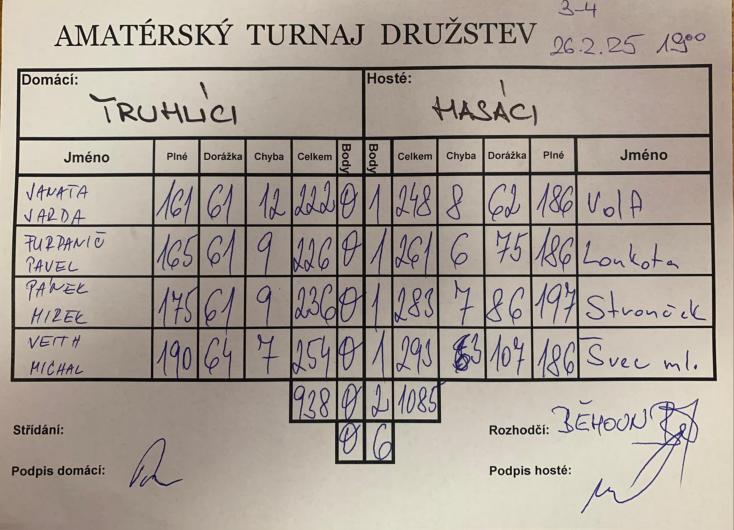 3-4
AMATÉRSKÝ TURNAJ DRUŽSTEV 26.2.25 19⁰⁰
Domácí: Hosté:
TRUHLÍCI MASÁCI
Jméno Plné Dorážka Chyba Celkem Body Body Celkem Chyba Dorážka Plné Jméno
JANATA JARDA 161 61 12 222 0 1 248 8 62 186 VolA
FURDANIČ PAVEL 165 61 9 226 0 1 261 6 75 186 Loukota
PÁNEK MIREK 175 61 9 236 0 1 283 7 86 197
VEITH MICHAL 190 64 7 254 0 1 293 3 107 186 Švec ml.
938 0 2 1085
0 6
Střídání: Rozhodčí: BĚHOUN
Podpis domácí: Podpis hosté: